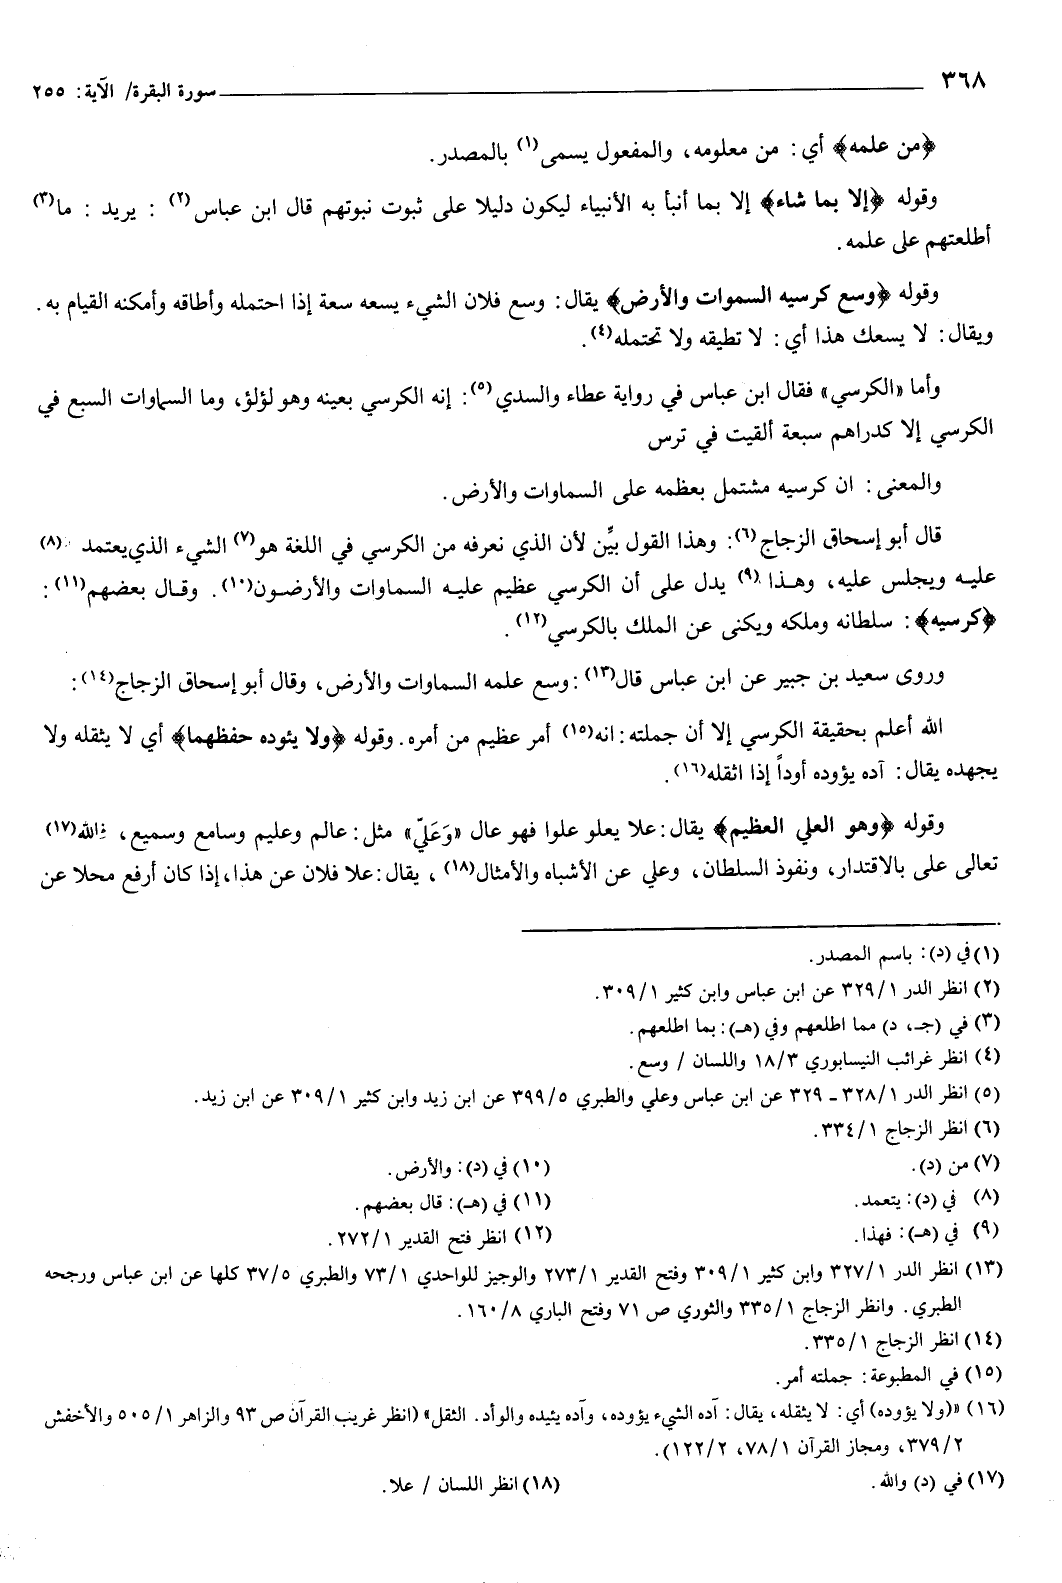 ٣٦٨
سورة البقرة/ الآية: ٢٥٥
﴿من علمه﴾ أي: من معلومه، والمفعول يسمى(١) بالمصدر.
وقوله ﴿إلا بما شاء﴾ إلا بما أنبأ به الأنبياء ليكون دليلا على ثبوت نبوتهم قال ابن عباس(٢) : يريد : ما(٣)
أطلعتهم على علمه.
وقوله ﴿وسع كرسيه السموات والأرض﴾ يقال: وسع فلان الشيء يسعه سعة إذا احتمله وأطاقه وأمكنه القيام به.
ويقال: لا يسعك هذا أي: لا تطيقه ولا تحتمله(٤).
وأما «الكرسي» فقال ابن عباس في رواية عطاء والسدي(٥): إنه الكرسي بعينه وهو لؤلؤ، وما السماوات السبع في
الكرسي إلا كدراهم سبعة ألقيت في ترس
والمعنى: ان كرسيه مشتمل بعظمه على السماوات والأرض.
قال أبو إسحاق الزجاج(٦): وهذا القول بيِّن لأن الذي نعرفه من الكرسي في اللغة هو(٧) الشيء الذي يعتمد (٨)
عليه ويجلس عليه، وهذا (٩) يدل على أن الكرسي عظيم عليه السماوات والأرضون(١٠). وقال بعضهم(١١):
﴿كرسيه﴾: سلطانه وملكه ويكنى عن الملك بالكرسي(١٢).
وروى سعيد بن جبير عن ابن عباس قال(١٣): وسع علمه السماوات والأرض، وقال أبو إسحاق الزجاج(١٤):
الله أعلم بحقيقة الكرسي إلا أن جملته: انه(١٥) أمر عظيم من أمره. وقوله ﴿ولا يئوده حفظهما﴾ أي لا يثقله ولا
يجهده يقال: آده يؤوده أوداً إذا اثقله(١٦).
وقوله ﴿وهو العلي العظيم﴾ يقال: علا يعلو علوا فهو عال «وَعَلِيّ» مثل: عالم وعليم وسامع وسميع، فالله(١٧)
تعالى على بالاقتدار، ونفوذ السلطان، وعلي عن الأشباه والأمثال(١٨)، يقال: علا فلان عن هذا، إذا كان أرفع محلا عن
(١) في (د): باسم المصدر.
(٢) انظر الدر ٣٢٩/١ عن ابن عباس وابن كثير ٣٠٩/١.
(٣) في (جـ، د) مما اطلعهم وفي (هـ): بما اطلعهم.
(٤) انظر غرائب النيسابوري ١٨/٣ واللسان / وسع.
(٥) انظر الدر ٣٢٨/١ - ٣٢٩ عن ابن عباس وعلي والطبري ٣٩٩/٥ عن ابن زيد وابن كثير ٣٠٩/١ عن ابن زيد.
(٦) انظر الزجاج ٣٣٤/١.
(٧) من (د).
(٨) في (د): يتعمد.
(٩) في (هـ): فهذا.
(١٠) في (د): والأرض.
(١١) في (هـ): قال بعضهم.
(١٢) انظر فتح القدير ٢٧٢/١.
(١٣) انظر الدر ٣٢٧/١ وابن كثير ٣٠٩/١ وفتح القدير ٢٧٣/١ والوجيز للواحدي ٧٣/١ والطبري ٣٧/٥ كلها عن ابن عباس ورجحه
الطبري. وانظر الزجاج ٣٣٥/١ والثوري ص ٧١ وفتح الباري ١٦٠/٨.
(١٤) انظر الزجاج ٣٣٥/١.
(١٥) في المطبوعة: جملته أمر.
(١٦) «(ولا يؤوده) أي: لا يثقله، يقال: آده الشيء يؤوده، وآده يئيده والوأد. الثقل» (انظر غريب القرآن ص ٩٣ والزاهر ٥٠٥/١ والأخفش
٣٧٩/٢، ومجاز القرآن ٧٨/١، ١٢٢/٢).
(١٧) في (د) والله.
(١٨) انظر اللسان / علا.